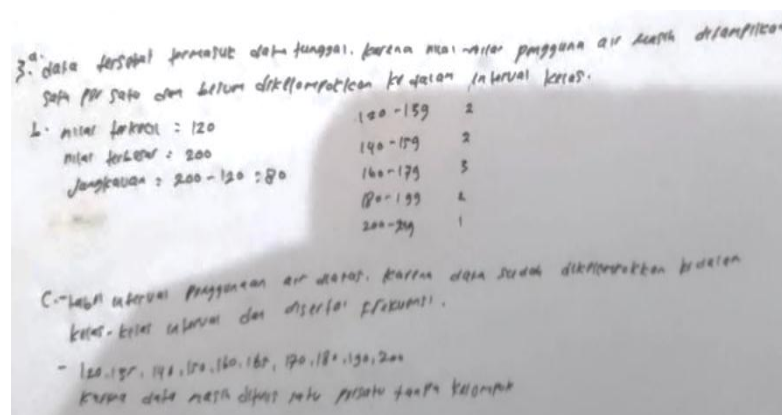 3. a. data tersebut termasuk data tunggal. karena nilai-nilai pengguna air masih ditampilkan
satu per satu dan belum dikelompokkan ke dalam interval kelas.
b. nilai terkecil : 120
nilai terbesar : 200
Jangkauan : 200 - 120 : 80
120 - 139 2
140 - 159 2
160 - 179 3
180 - 199 2
200 - 219 1
C. - tabel interval penggunaan air diatas. karena data sudah dikelompokkan kedalam
kelas-kelas interval dan disertai frekuensi.
- 120, 135, 140, 150, 160, 165, 170, 180, 190, 200
karena data masih ditulis satu persatu tanpa kelompok